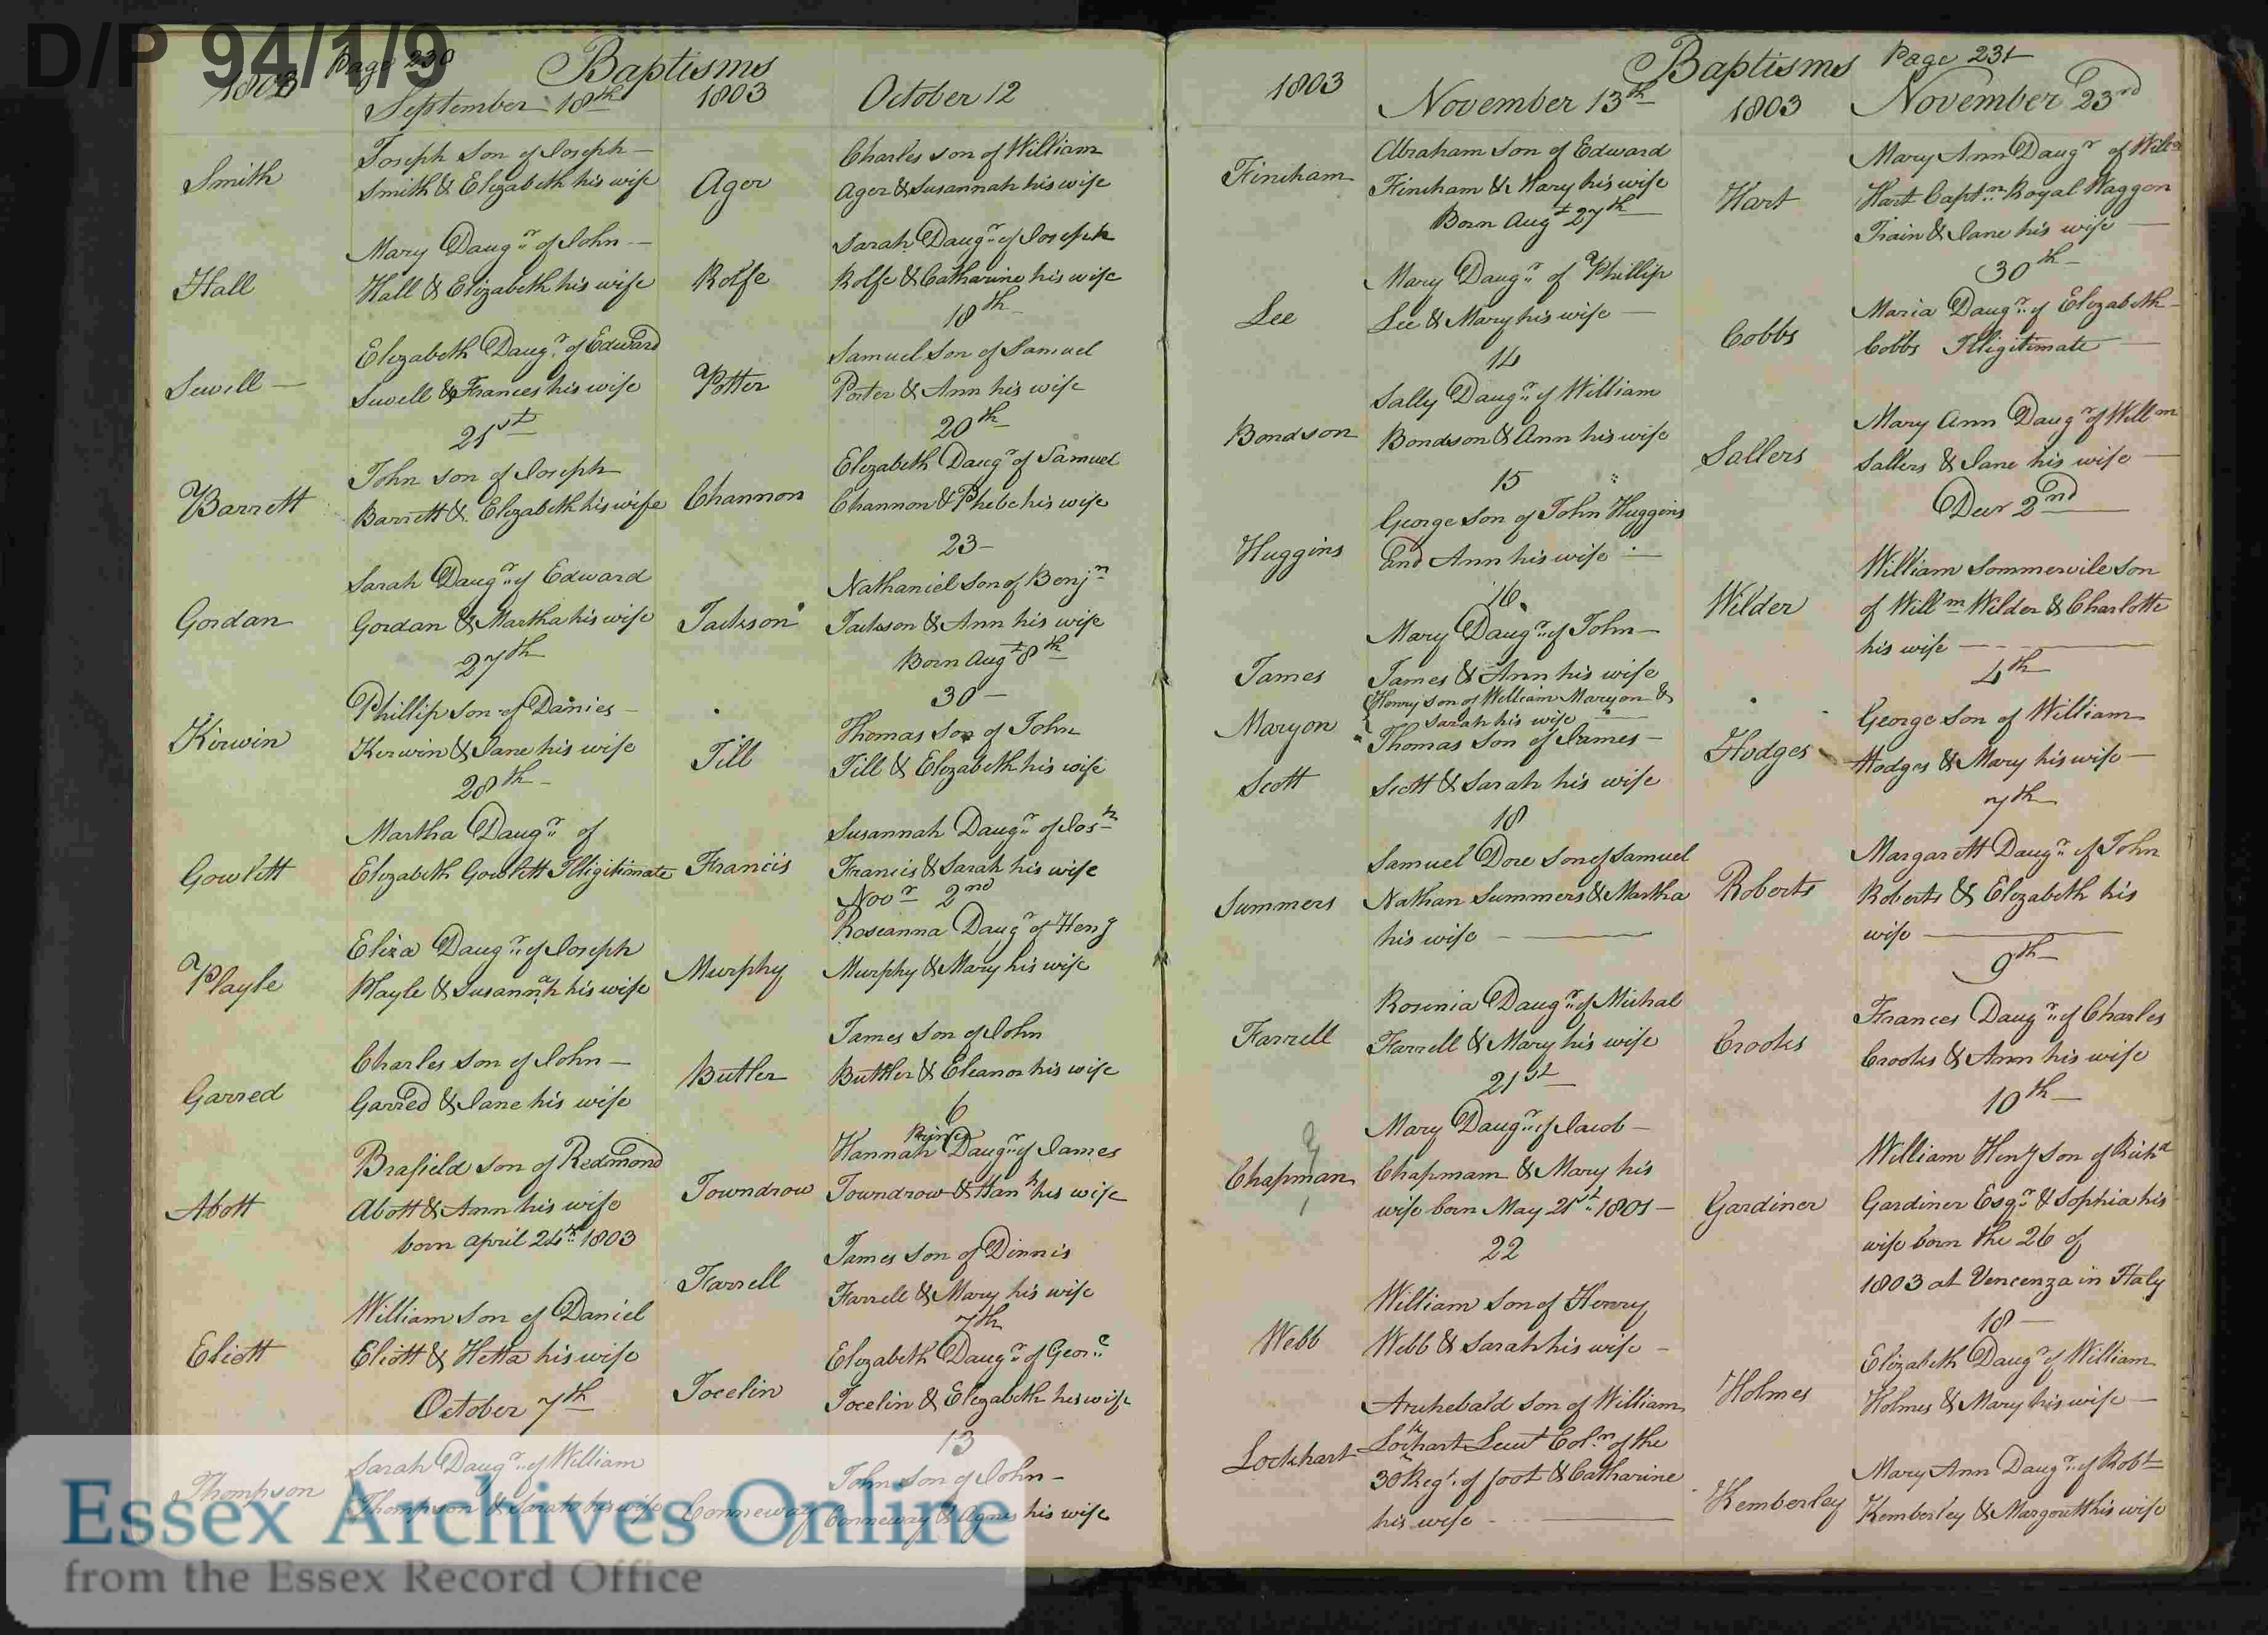 D/P 94/1/9
Page 230 Baptisms
1803 September 18th
Smith
Joseph Son of Joseph
Smith & Elizabeth his wife
Hall
Mary Daugr of John
Hall & Elizabeth his wife
Sewell
Elizabeth Daugr of Edward
Sewell & Frances his wife
21st
Barrett
John son of Joseph
Barrett & Elizabeth his wife
Gordan
Sarah Daugr of Edward
Gordan & Martha his wife
27th
Kirwin
Phillip son of Danies
Kerwin & Jane his wife
28th
Gowlett
Martha Daugr of
Elizabeth Gowlett Illigitimate
Playle
Eliza Daugr of Joseph
Playle & Susannah his wife
Garred
Charles son of John
Garred & Jane his wife
Abott
Brafield son of Redmond
Abott & Ann his wife
born april 24th 1803
Eliott
William son of Daniel
Eliott & Hetta his wife
October 7th
Thompson
Sarah Daugr of William
Thompson & Sarah his wife
1803 October 12
Ager
Charles son of William
Ager & Susannah his wife
Rolfe
Sarah Daugr of Joseph
Rolfe & Catharine his wife
18th
Potter
Samuel Son of Samuel
Porter & Ann his wife
20th
Channon
Elizabeth Daugr of Samuel
Channon & Phebe his wife
23
Jackson
Nathaniel son of Benjn
Jackson & Ann his wife
Born Augt 8th
30
Till
Thomas Son of John
Till & Elizabeth his wife
Francis
Susannah Daugr of Josh
Francis & Sarah his wife
Novr 2nd
Murphy
Roseanna Daugr of Heny
Murphy & Mary his wife
Butler
James Son of John
Buttler & Eleanor his wife
6
Towndrow
Hannah Daugr of James
Towndrow & Hanh his wife
Farrell
James Son of Dinnis
Farrell & Mary his wife
7th
Jocelin
Elizabeth Daugr of Geore
Jocelin & Elizabeth his wife
13
Conneway
John Son of John
Conneway & Agnes his wife
Baptisms Page 231
1803 November 13th
Fincham
Abraham Son of Edward
Fincham & Mary his wife
Born Augt 27th
Lee
Mary Daugr of Phillip
Lee & Mary his wife
14
Bondson
Sally Daugr of William
Bondson & Ann his wife
15
Huggins
George Son of John Huggins
and Ann his wife
16
James
Mary Daugr of John
James & Ann his wife
Maryon
Henry son of William Maryon &
Sarah his wife
Scott
Thomas Son of James
Scott & Sarah his wife
18
Summers
Samuel Dore Son of Samuel
Nathan Summers & Martha
his wife
Farrell
Rosinia Daugr of Michal
Farrell & Mary his wife
21st
Chapman
Mary Daugr of Jacob
Chapmam & Mary his
wife born May 21st 1801
22
Webb
William Son of Henry
Webb & Sarah his wife
Lockhart
Archebald son of William
Lockhart Leut Coln of the
30 Regt of foot & Catharine
his wife
1803 November 23rd
Hart
Mary Ann Daugr of Willm
Hart Captn Royal Waggon
Train & Jane his wife
30th
Cobbs
Maria Daugr of Elizabeth
Cobbs Illigitimate
Sallers
Mary Ann Daugr of Willm
Sallers & Jane his wife
Decr 2nd
Wilder
William Sommervile Son
of Willm Wilder & Charlotte
his wife
4th
Hodges
George Son of William
Hodges & Mary his wife
7th
Roberts
Margarett Daugr of John
Roberts & Elizabeth his
wife
9th
Crooks
Frances Daugr of Charles
Crooks & Ann his wife
10th
Gardiner
William Heny Son of Richd
Gardiner Esqr & Sophia his
wife born the 26 of
1803 at Vencenza in Italy
18
Holmes
Elizabeth Daugr of William
Holmes & Mary his wife
Kemberley
Mary Ann Daugr of Robt
Kemberley & Margarett his wife
Essex Archives Online
from the Essex Record Office